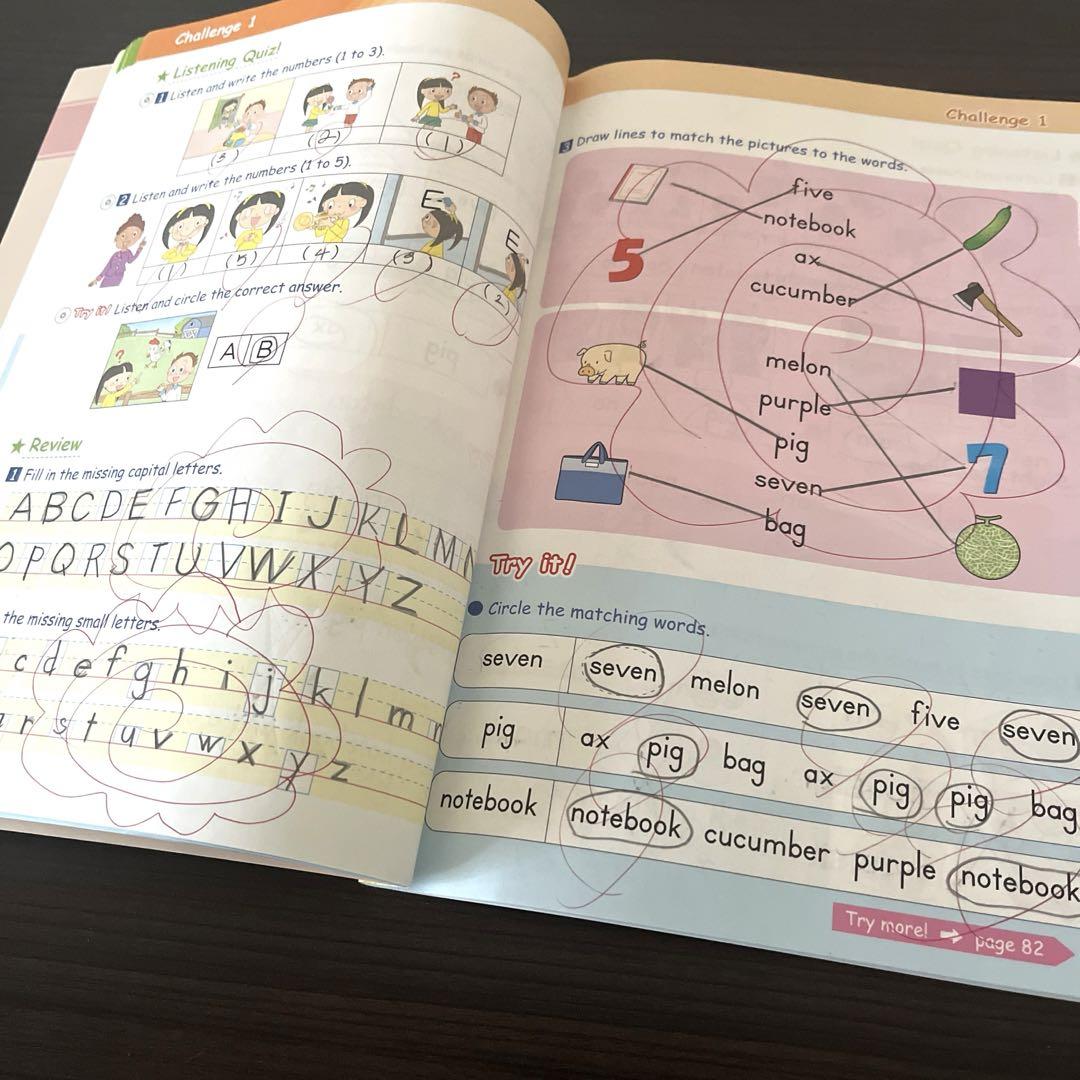 Challenge 1
★ Listening Quiz!
1 Listen and write the numbers (1 to 3).
(3) (2) (1)
2 Listen and write the numbers (1 to 5).
E E
(1) (5) (4) (3) (2)
Try it! Listen and circle the correct answer.
A B
★ Review
1 Fill in the missing capital letters.
A B C D E F G H I J K L M N
O P Q R S T U V W X Y Z
the missing small letters.
c d e f g h i j k l m
r s t u v w x y z
Challenge 1
3 Draw lines to match the pictures to the words.
five
notebook
5
ax
cucumber
melon
purple
pig
7
seven
bag
Try it!
Circle the matching words.
seven seven melon seven five seven
pig ax pig bag ax pig pig bag
notebook notebook cucumber purple notebook
Try more! ➡ page 82